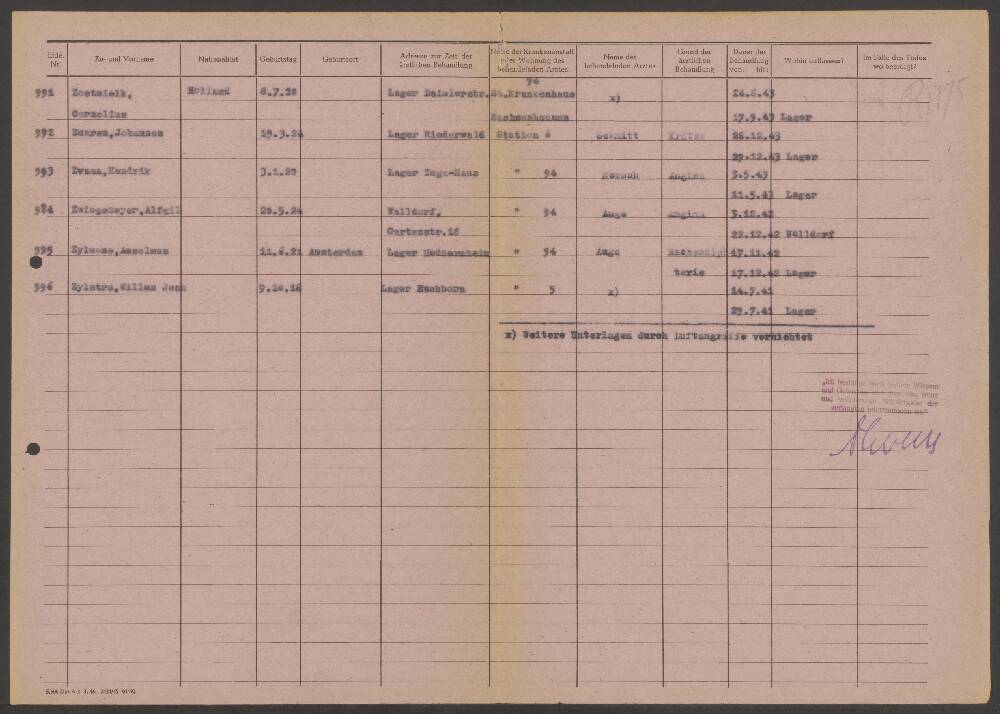 Lfde. Nr. Zu- und Vorname Nationalität Geburtstag Geburtsort Adresse zur Zeit der ärztlichen Behandlung Name der Krankenanstalt oder Wohnung des behandelnden Arztes Name des behandelnden Arztes Grund der ärztlichen Behandlung Dauer der Behandlung von: bis: Wohin entlassen? Im Falle des Todes wo beerdigt?
94
991 Zoetmielk, Holland 8.7.20 Lager Daimlerstr. St.Krankenhaus x) 24.8.43
Cornelius Sachsenhausen 17.9.43 Lager
992 Zuuren,Johannes 19.3.24 Lager Riederwald Station 6 Schmitt Krätze 26.12.43
29.12.43 Lager
993 Zwaan,Hendrik 3.1.20 Lager Togo-Haus " 94 Kersch Angina 3.5.43
11.5.43 Lager
994 20.5.24 Walldorf, " 94 Auge Angina 3.12.42
Gartenstr.18 22.12.42 Walldorf
995 Zylmans,Anselmus 11.6.21 Amsterdam Lager Heddernheim " 94 Auge Rachendiph 17.11.42
terie 17.12.42 Lager
996 Zylstra,Willem Jean 9.10.18 Lager Eschborn " 5 x) 14.7.41
29.7.41 Lager
x) Weitere Unterlagen durch Luftangriffe vernichtet
„Ich bestätige nach bestem Wissen
und verlangten Informationen ist."